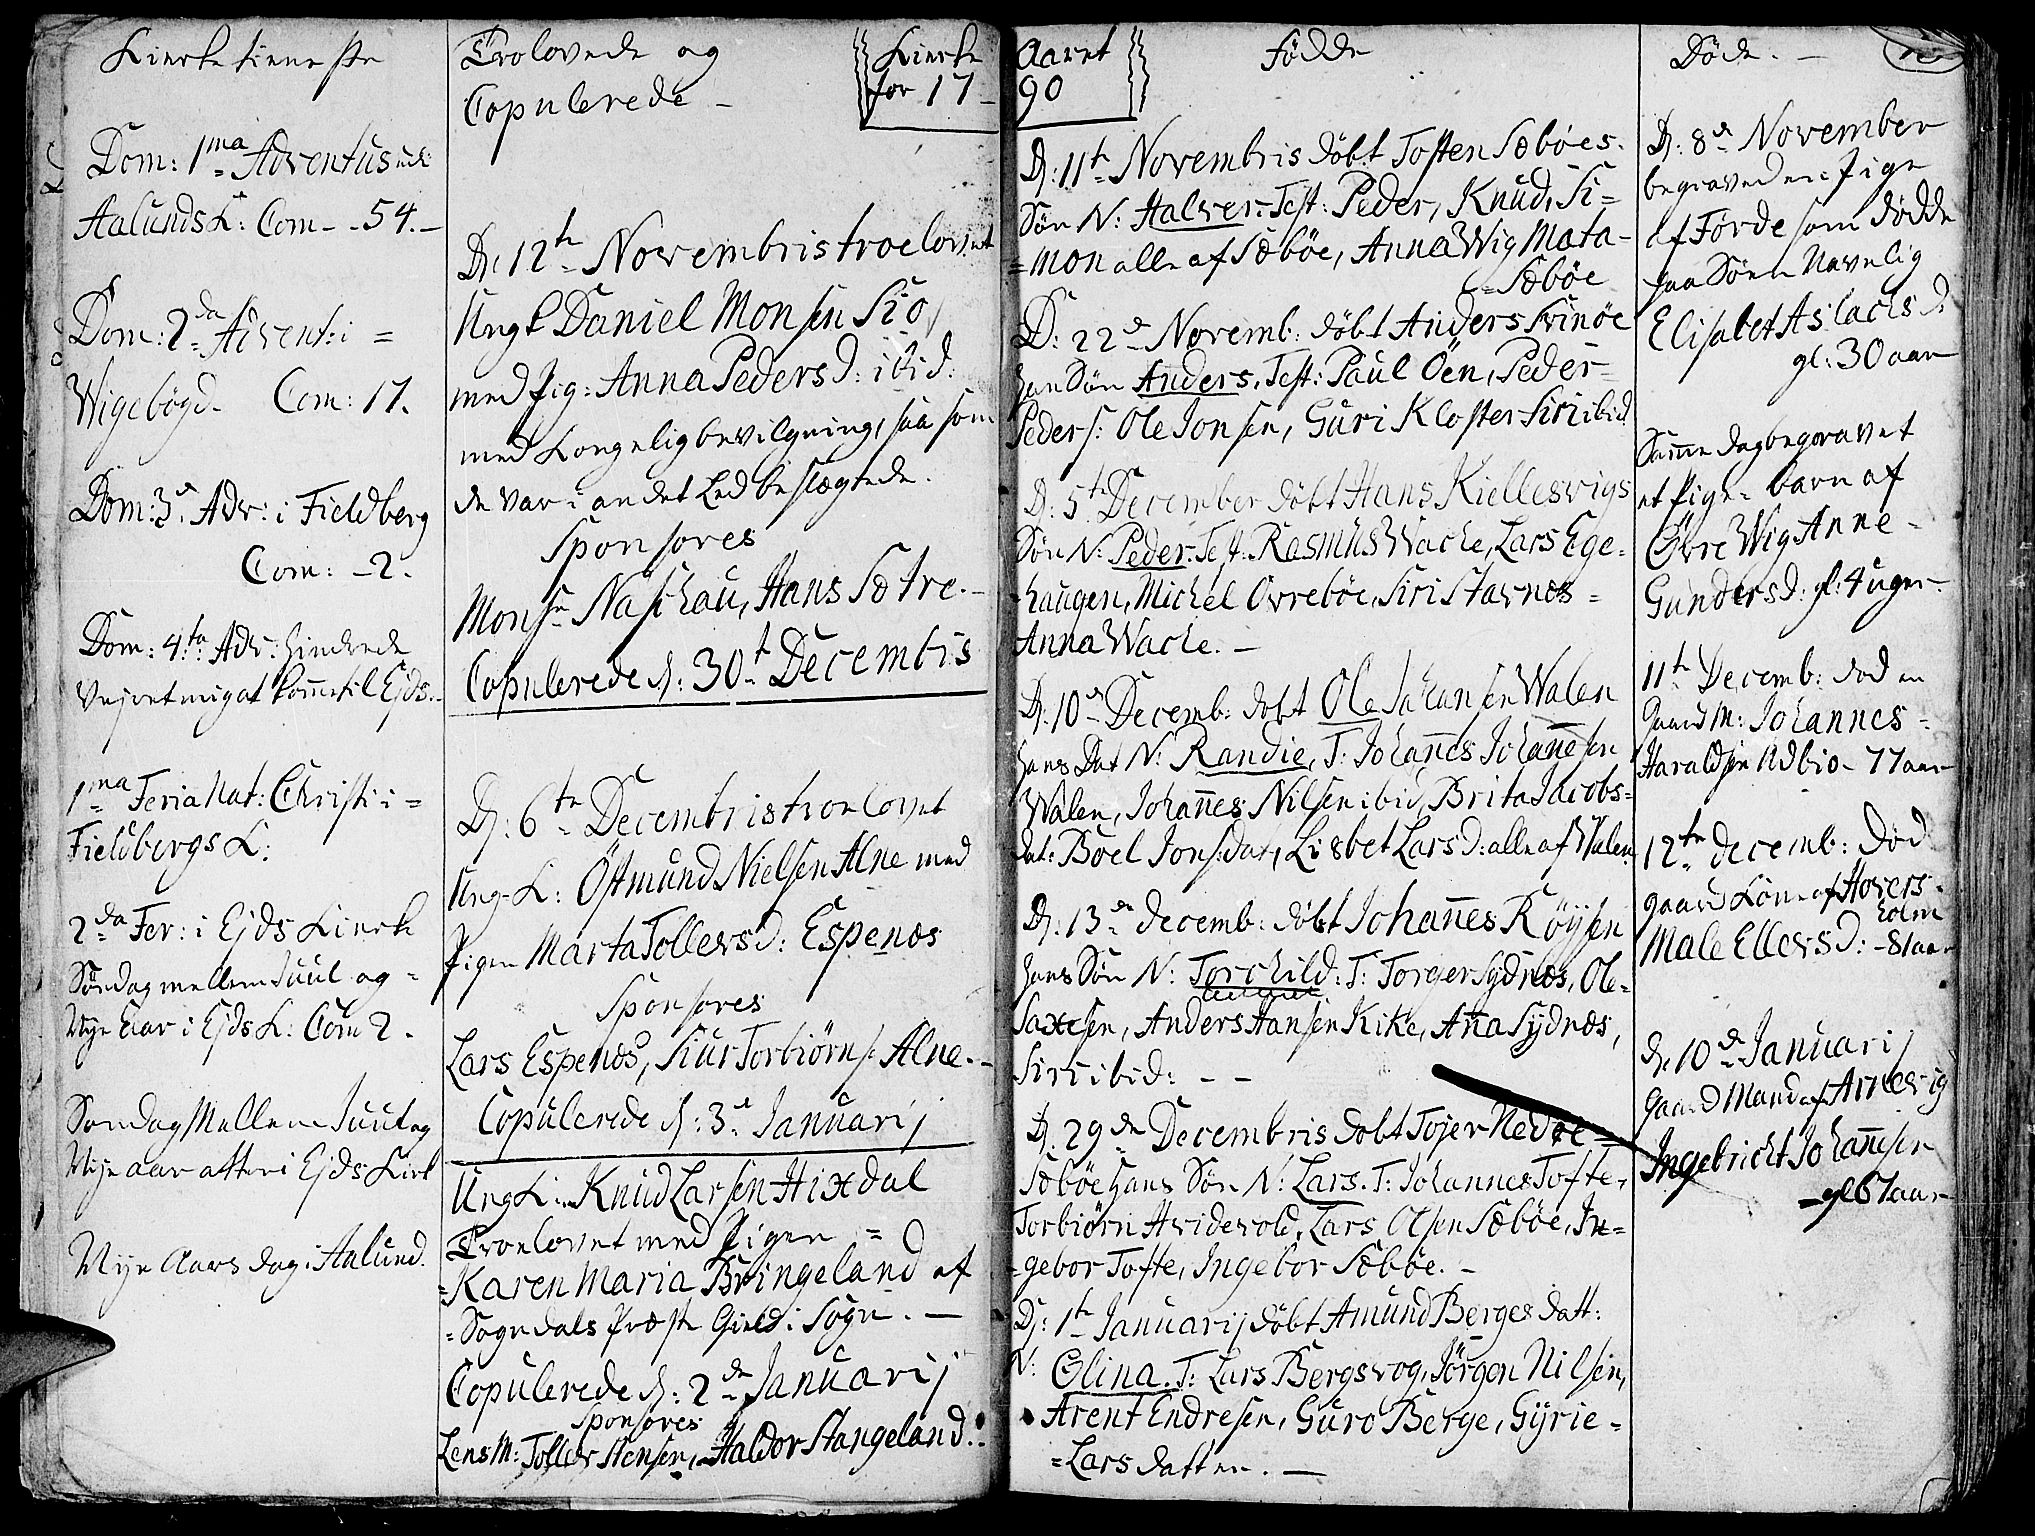 Kierketieneste
Dom: 1ma Adventus udi
Aalunds K: Com - - 54. -
Dom: 2da Advent: i =
Wigebögd. Com: 17.
Dom: 3de Adv: i Fieldberg
Com: - 2.
Dom: 4ta Adv: hindrede
Vejret mig at komme til Ejds.
1ma Feria Nat: Christi i =
Fieldbergs K:
2da Fer: i Ejds Kierke
Söndag mellem Juul og =
Nye Aar i Ejds K: Com 2.
Søndag Mellem Juul og
Nye aar atter i Ejds Kirk
Nye Aars dag i Aalund.
Trolovede og
Copulerede -
D: 12te Novembris troelovet
Ungk Daniel Monsen Sio,
med Pig: Anna Peders D: ibid:
med Kongelig bevilgning, saasom
de var i andet Led beslægtede.
Sponsores
Monsr Naschou, Hans Sætre. -
Copulerede d: 30t Decembis
D: 6te Decembris troelovet
Ung-K: Östmund Nielsen Alne med
Pigen Marta Tollevs D: Espenæs
Sponsores
Lars Espenæs, Siur Torbiörns: Alne. -
Copulerede d: 3de Januarij
Ung K: Knud Larsen Hixdal
Troelovet med Pigen =
= Karen Maria Bringeland af
= Sogndals Præste Gield i Sogn. -
Copulerede d: 2de Januarij
Sponsores
Lens M: Tollev Stensen, Haldor Stangeland.
Kierke Aaret
for 17 - 90
Födde
D: 11te Novembris döbt Tosten Sæbôes
Sön N: Halver. Test: Peder, Knud, Si=
= mon alle af Sæbôe, Anna Wig Mata -
= Sæbôe
D: 22de Novemb: döbt Anders Svinöe
hans Sön Anders, Test: Paul Öen, Peder
Peders: Ole Jonsen, Guri Kloster Siri ibid
D: 5te December döbt Hans Kiellesvigs
Sön N: Peder. Test: Rasmus Wache, Lars Ege=
haugen, Michel Ovreböe, Siri Stavnæs =
Anna Wache. -
D: 10de Decemb: döbt Ole Johansen Walen
hans Dat N: Randie, T: Johannes Johannesen
Walen, Johannes Nilsen ibid, Brita Jacobs=
dat: Boel Jons:dat, Lisbet Lars D: alle af Walen
D: 13de Decemb: döbt Johannes Röysen
hans Sön N: Torchild: T: Torger Sydnæs, Ole=
Saxesen, Anders Hansen Kike, Anna Sydnæs,
Siri ibid: - -
D: 29de Decembris döbt Tojer Nedre=
Sæböe hans Sön N: Lars. T: Johannes Tofte,
Torbiörn Hvidevold, Lars Olsen Sæböe, In=
= gebor Tofte, Ingebor Sæböe. -
D: 1te Januarij döbt Amund Berges Datt:
N: Olina. T: Lars Bergsvog, Jörgen Nilsen,
Arent Endresen, Guro Berge, Gyrie =
= Lars datter. -
Döde. -
D: 8de November
begravede en Pige
af Förde som dödde
paa Söen Navnlig
Elisabet Aslachs D
gl: 30 aar
Samme dag begravet
et Pige-barn af
Övre Wig Anne -
Gunders D: gl: 4 uger -
11te Decemb: död en
Gaard M: Johannes -
Haraldsen Udbio - 77 aar
12te Decemb: Död
gaard Kone af Hovers-
holm
Male Ellevs D: - 81 aar
D: 10de Januarij
Gaard Mand af Arnevig
Ingebricht Johannesen
- gl 67 aar